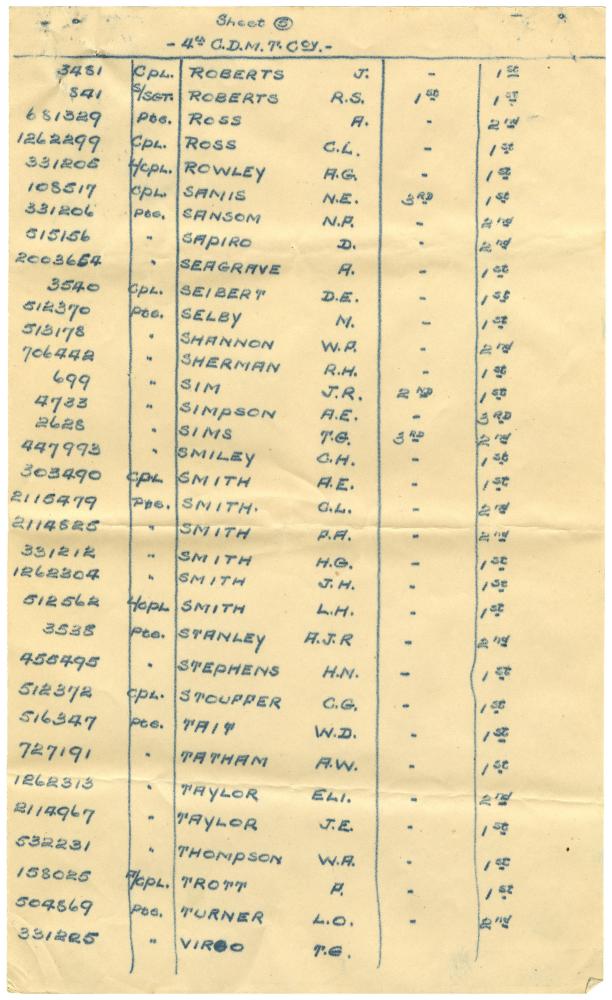 Sheet 5
- 4th C.D.M.T. Coy. -
3481 Cpl. ROBERTS J. - 1st
841 S/Sgt. ROBERTS R.S. 1st 1st
681329 Pte. ROSS A. - 2nd
1262299 Cpl. ROSS C.L. - 1st
331205 L/Cpl. ROWLEY A.G. - 1st
108517 Cpl. SAMIS N.E. 3rd 1st
331206 Pte. SANSOM N.P. - 2nd
515156 " SAPIRO D. - 2nd
2003654 " SEAGRAVE A. - 1st
3540 Cpl. SEIBERT D.E. - 1st
512370 Pte. SELBY M. - 1st
513178 " SHANNON W.P. - 2nd
706442 " SHERMAN R.H. - 1st
699 " SIM J.R. 2nd 1st
4733 " SIMPSON A.E. - 3rd
2628 " SIMS T.G. 3rd 2nd
447993 " SMILEY C.H. - 1st
303490 Cpl SMITH A.E. - 1st
2115479 Pte. SMITH. C.L. - 2nd
2114525 " SMITH P.A. - 2nd
331212 " SMITH H.G. - 1st
1262304 " SMITH J.H. - 1st
512562 L/Cpl SMITH L.H. - 1st
3535 Pte. STANLEY A.J.R - 2nd
455495 " STEPHENS H.N. - 1st
512372 Cpl. STOUPPER C.G. - 1st
516347 Pte. TAIT W.D. - 1st
727191 " TATHAM A.W. - 1st
1262313 " TAYLOR ELI. - 2nd
2114967 " TAYLOR J.E. - 1st
532231 " THOMPSON W.A. - 1st
158025 A/Cpl. TROTT P. - 1st
504869 Pte. TURNER L.O. - 2nd
331225 " VIRGO T.G.